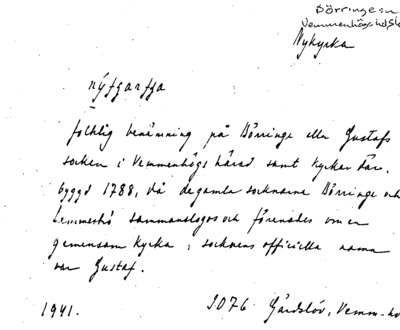 Börringe sn
Vemmenhögs hd, Sk
Nykyrka
nýfgarfga
folklig benämning på Börringe eller Gustafs
socken i Vemmenhögs härad samt kyrkan där,
byggd 1788, då de gamla socknarna Börringe och
Lemmeströ sammanslogos och förenades om en
gemensam kyrka; socknens officiella namn
var Gustaf.
1941. 1076 Gärdslöv, Vemm-